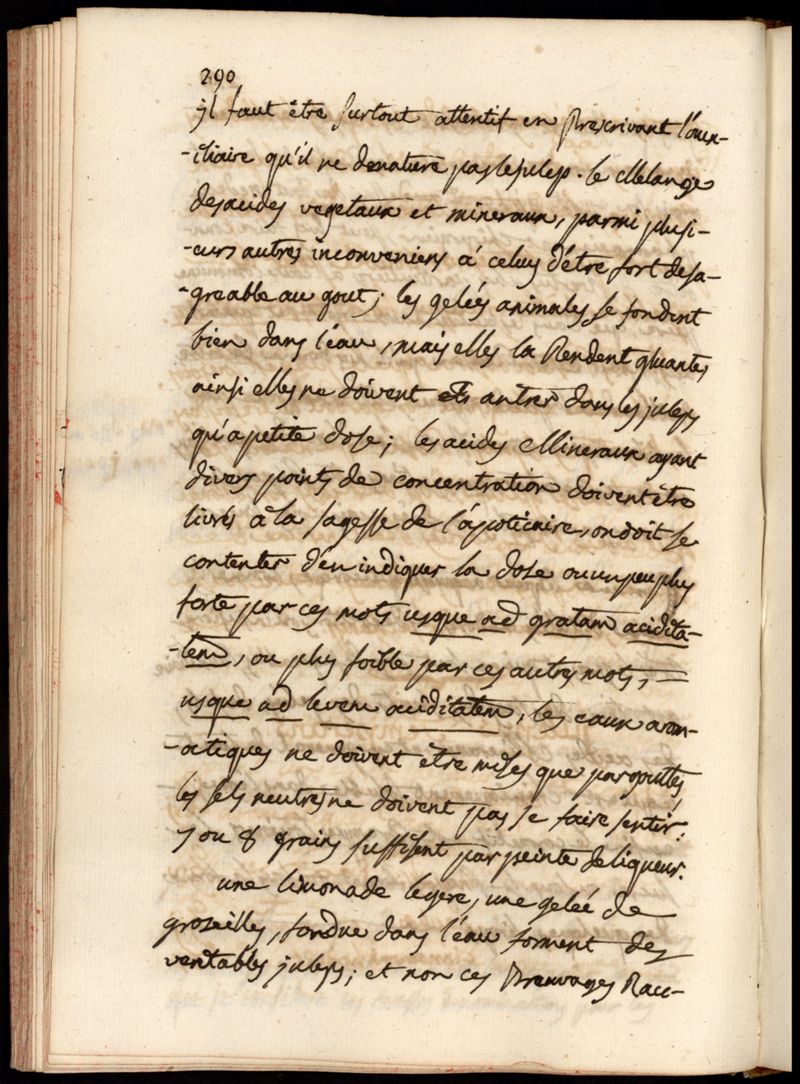 290
il faut être surtout attentif en prescrivant l'aux-
-iliaire qu'il ne denature pas le julep. le Melange
des acides vegetaux et mineraux, parmi plusi-
-eurs autres inconveniens à celuy d'être fort desa-
-greable au gout; les gelées animales se fondent
bien dans l'eau, mais elles la Rendent gluante,
ainsi elles ne doivent entrer dans les juleps
qu'a petite dose; les acides Mineraux ayant
divers points de concentration doivent être
livrés à la sagesse de l'apoticaire, on doit se
contenter d'en indiquer la dose ou un peu plus
forte par ces mots usque ad gratam acidita-
-tem, ou plus foible par ces autres mots, =
usque ad levem aciditatem, les eaux arom-
-atiques ne doivent être mises que par goutte,
les sels neutres ne doivent pas se faire sentir:
7 ou 8 grains suffisent par peinte de liqueur.
une limonade legere, une gelée de
grozeilles, fondue dans l'eau forment des
veritables juleps; et non ces Breuvages Racc-